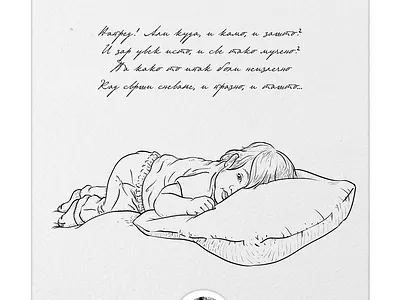 Напред! Али куда, и камо, и зашто?
И зар увек исто, и све тако мучено?
Па како то ипак боли неизлечно
Кад сврши сневање, и празно, и ташто...